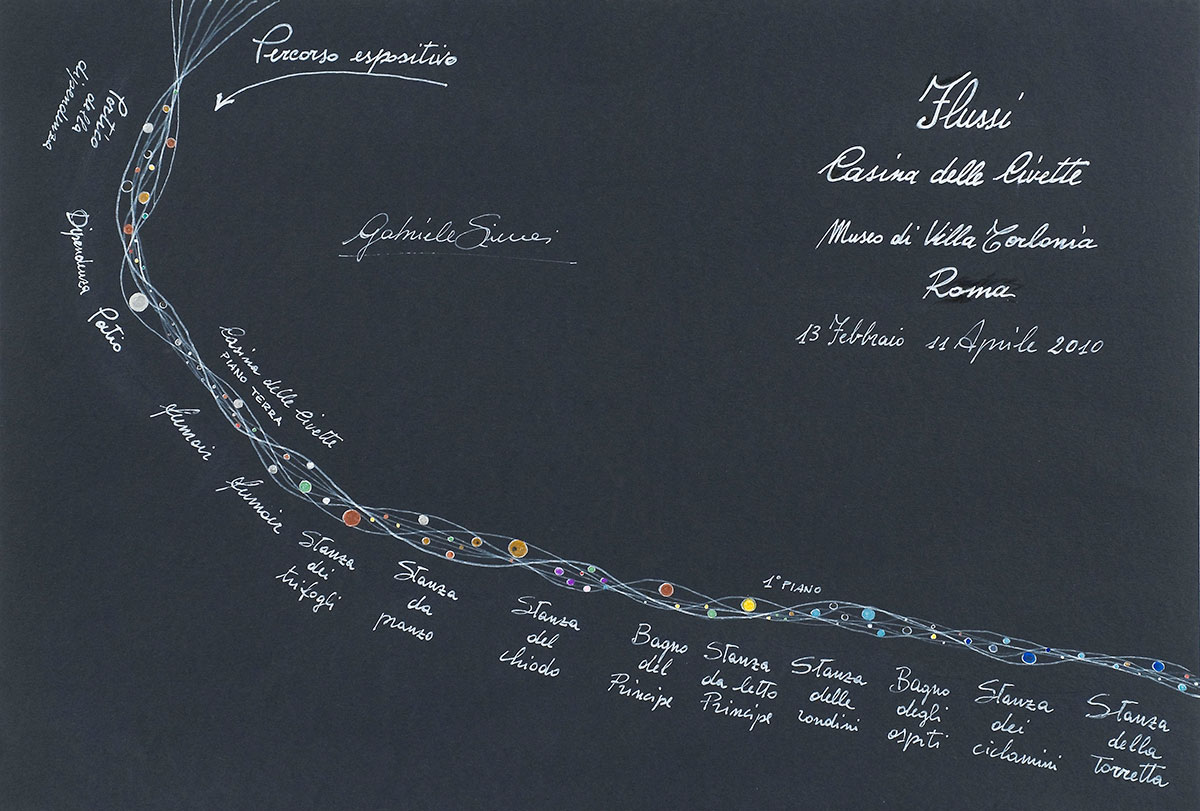 Percorso espositivo
Flussi
Casina delle Civette
Museo di Villa Torlonia
Roma
13 Febbraio 11 Aprile 2010
Portico
della
dipendenza
Gabriele Simei
Dipendenza
Patio
Casina delle Civette
PIANO TERRA
Fumoir
Fumoir
Stanza
dei
trifogli
Stanza
da
pranzo
Stanza
del
chiodo
1° PIANO
Bagno
del
Principe
Stanza
da letto
Principe
Stanza
delle
rondini
Bagno
degli
ospiti
Stanza
dei
ciclamini
Stanza
della
Torretta